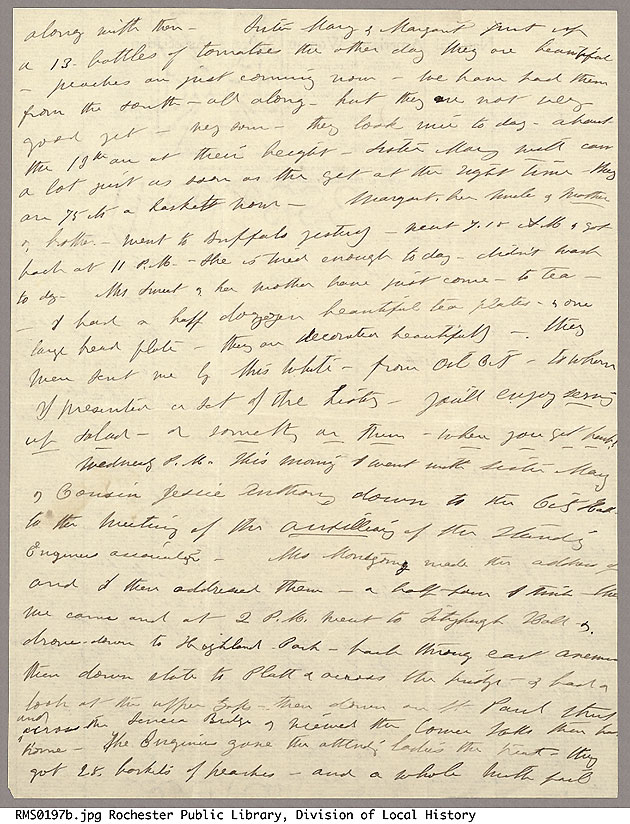 along with them — Sister Mary & Margaret put up
a 13 bottles of tomatoes the other day they are beautiful
— peaches are just coming now — we have had them
from the south — all along — but they are not very
good yet — very some — they look nice to day — about
the 19th are at their height — Sister Mary will can
a lot just as soon as the get at the right time — they
are 75 cts a baskett now — Margaret, her Uncle & Mother
& brother — went to Buffalo yesterdy — went 7.15 A.M & got
back at 11 P.M. — She is tired enough to day — didn't wash
to dy — Mrs Sweet & her mother have just come — to tea —
— I had a half dozen beautiful tea plates — & one
large bread plate — they are decorated beautifully —. They
were sent me by Miss White — from Oil City — to whom
I presented a set of the History — you'll enjoy serving
up salad — or something on them — when you get
Wednesdy P.M. This morning I went with Sister Mary
& Cousin Jessie Anthony down to the City Hall
to the meeting of the auxilliary of the Standy
Engineers association — Mrs Montgomery made the address of
and I then addressed them — a half-hour I think — then
we came and at 2 P.M. went to Fitzhugh Hall &
drove down to Highland Park — back through east avenue
then down state to Platt & across the bridge — & had a
look at the upper falls — then down on St Paul street
and across the Seneca Bridge & viewed the lower falls then
home — The Engineers gave the attendg ladies the treat — they
got 28. baskets of peaches — and a whole
RMS0197b.jpg Rochester Public Library, Division of Local History